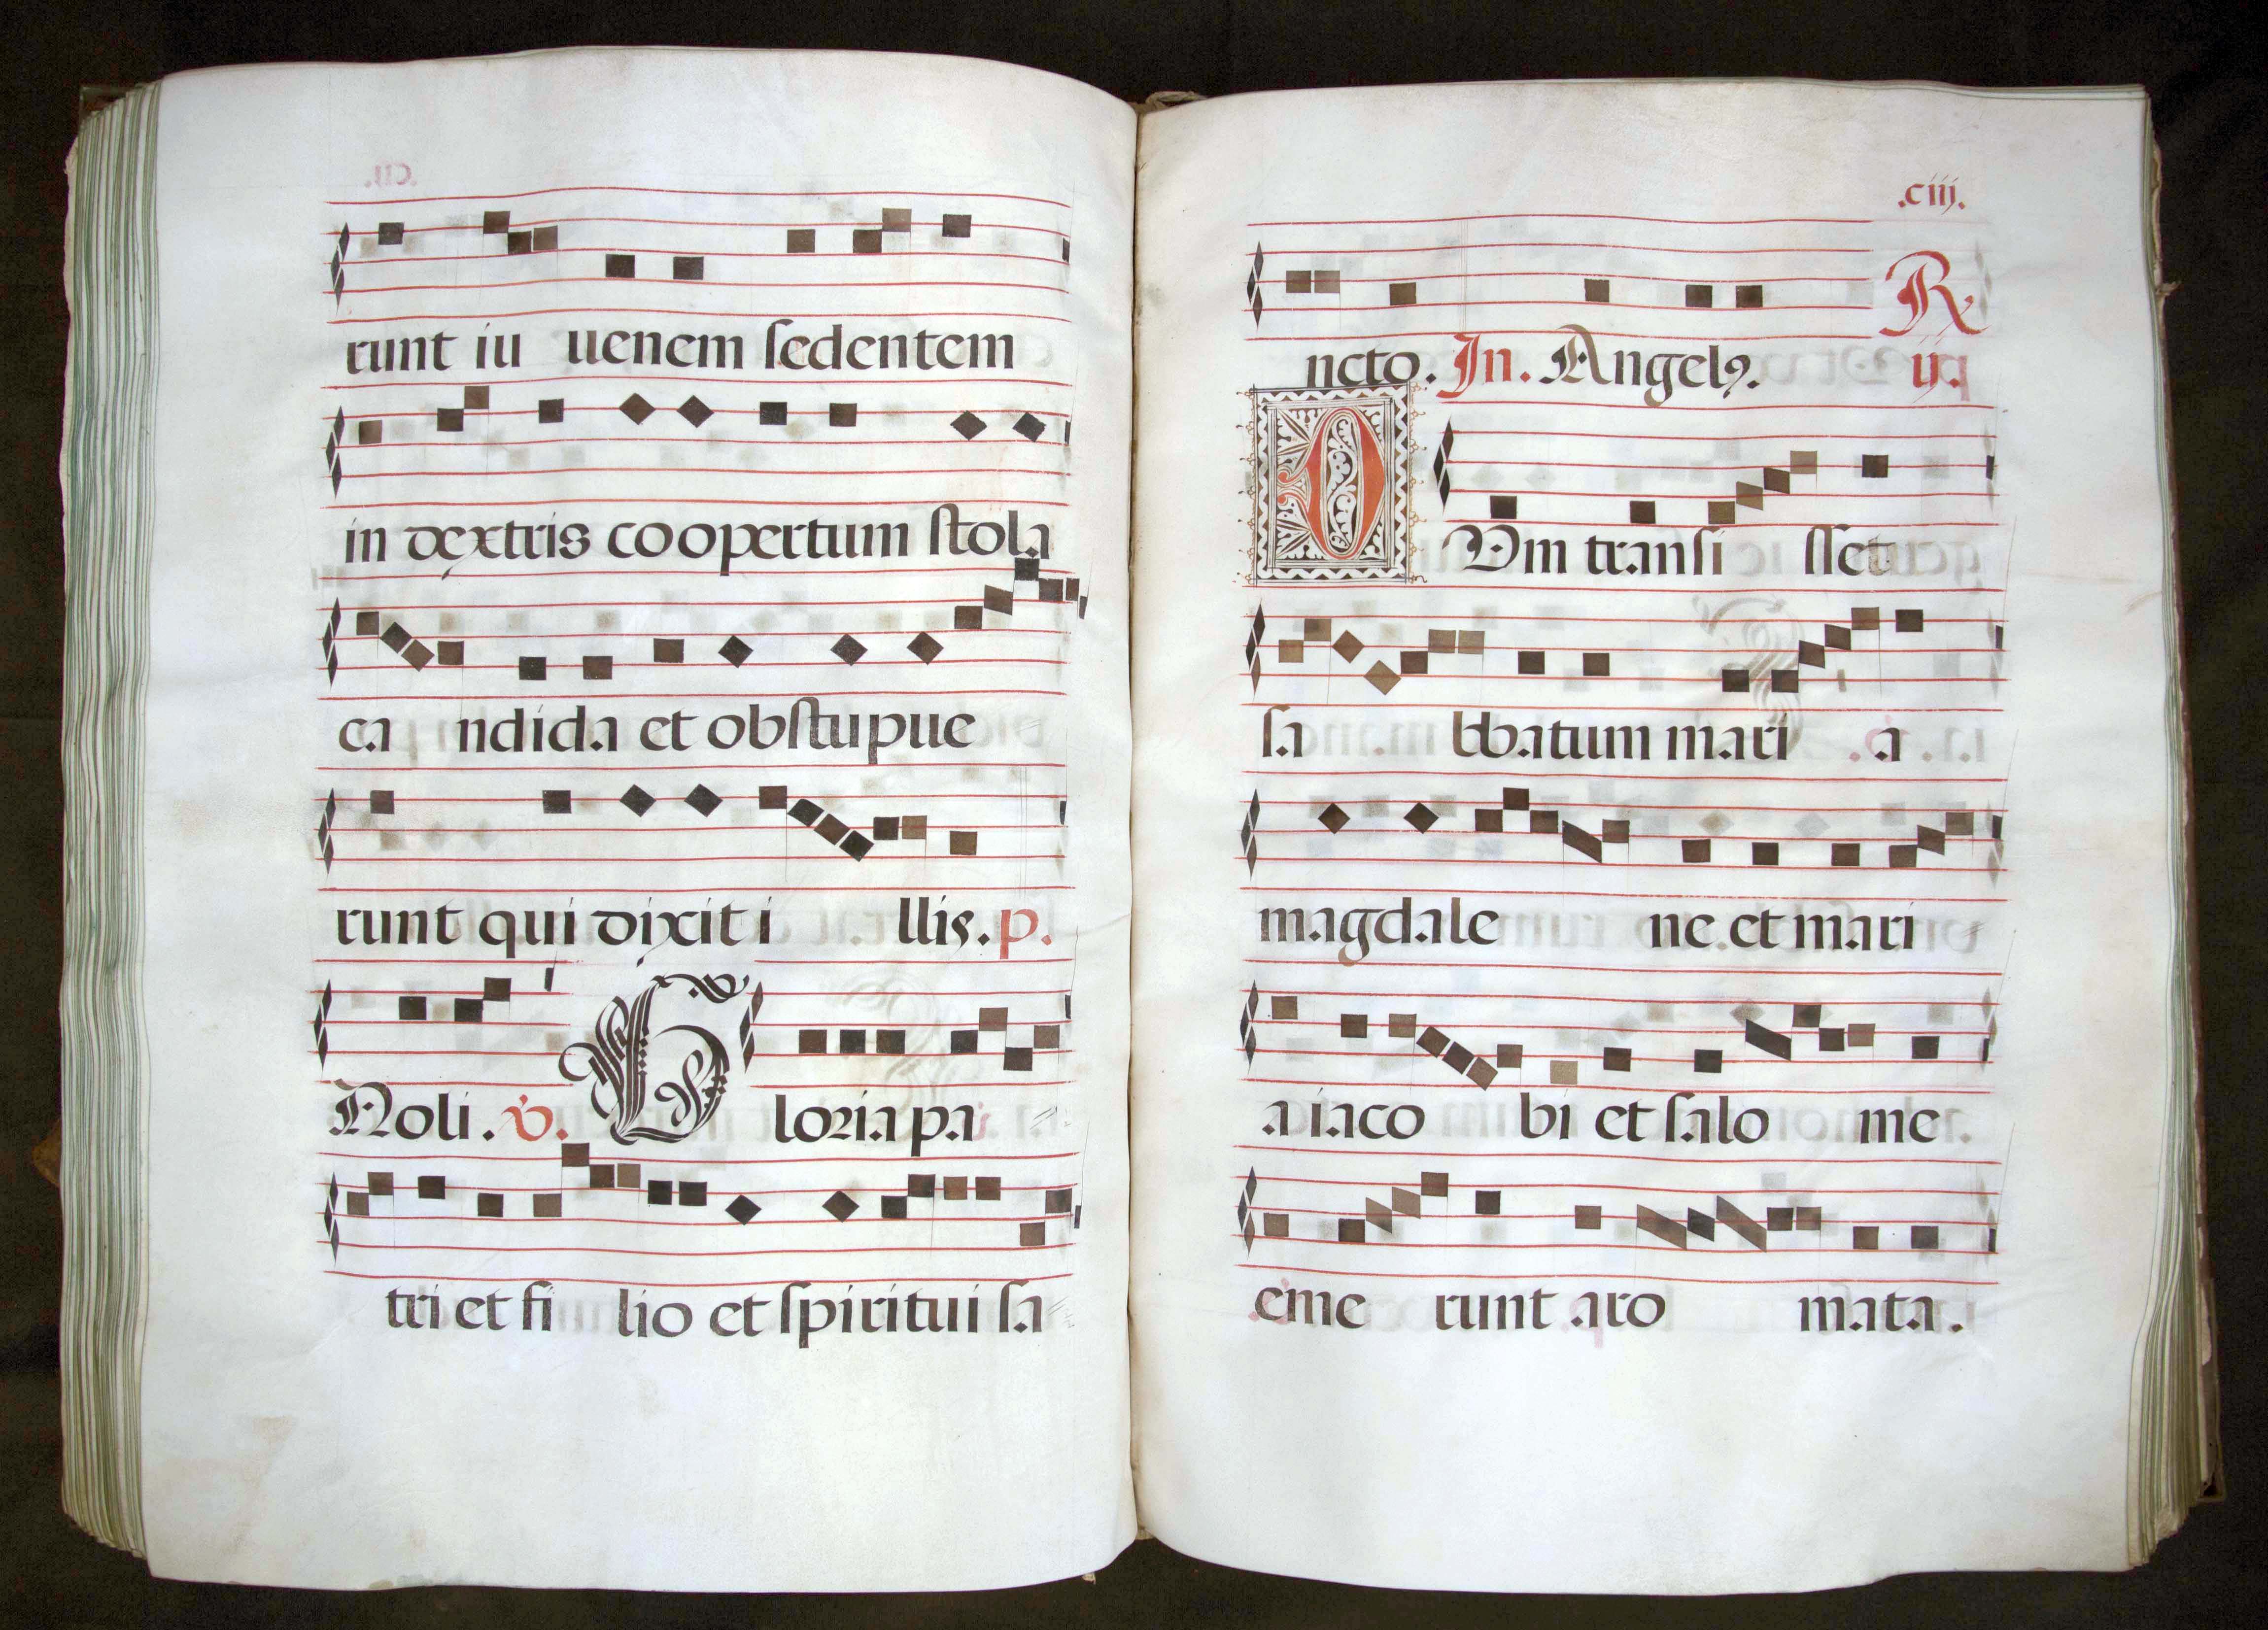 runt iu uenem sedentem
in dextris coopertum stola
ca ndida et obstupue
runt qui dixit i llis. p.
Noli. v. Gloria pa
tri et fi lio et spiritui sa
.ciij.
R
ncto. In. Angelꝰ. ij.
DVm transi sset
sa bbatum mari a
magdale ne et mari
a iaco bi et salo me
eme runt aro mata.